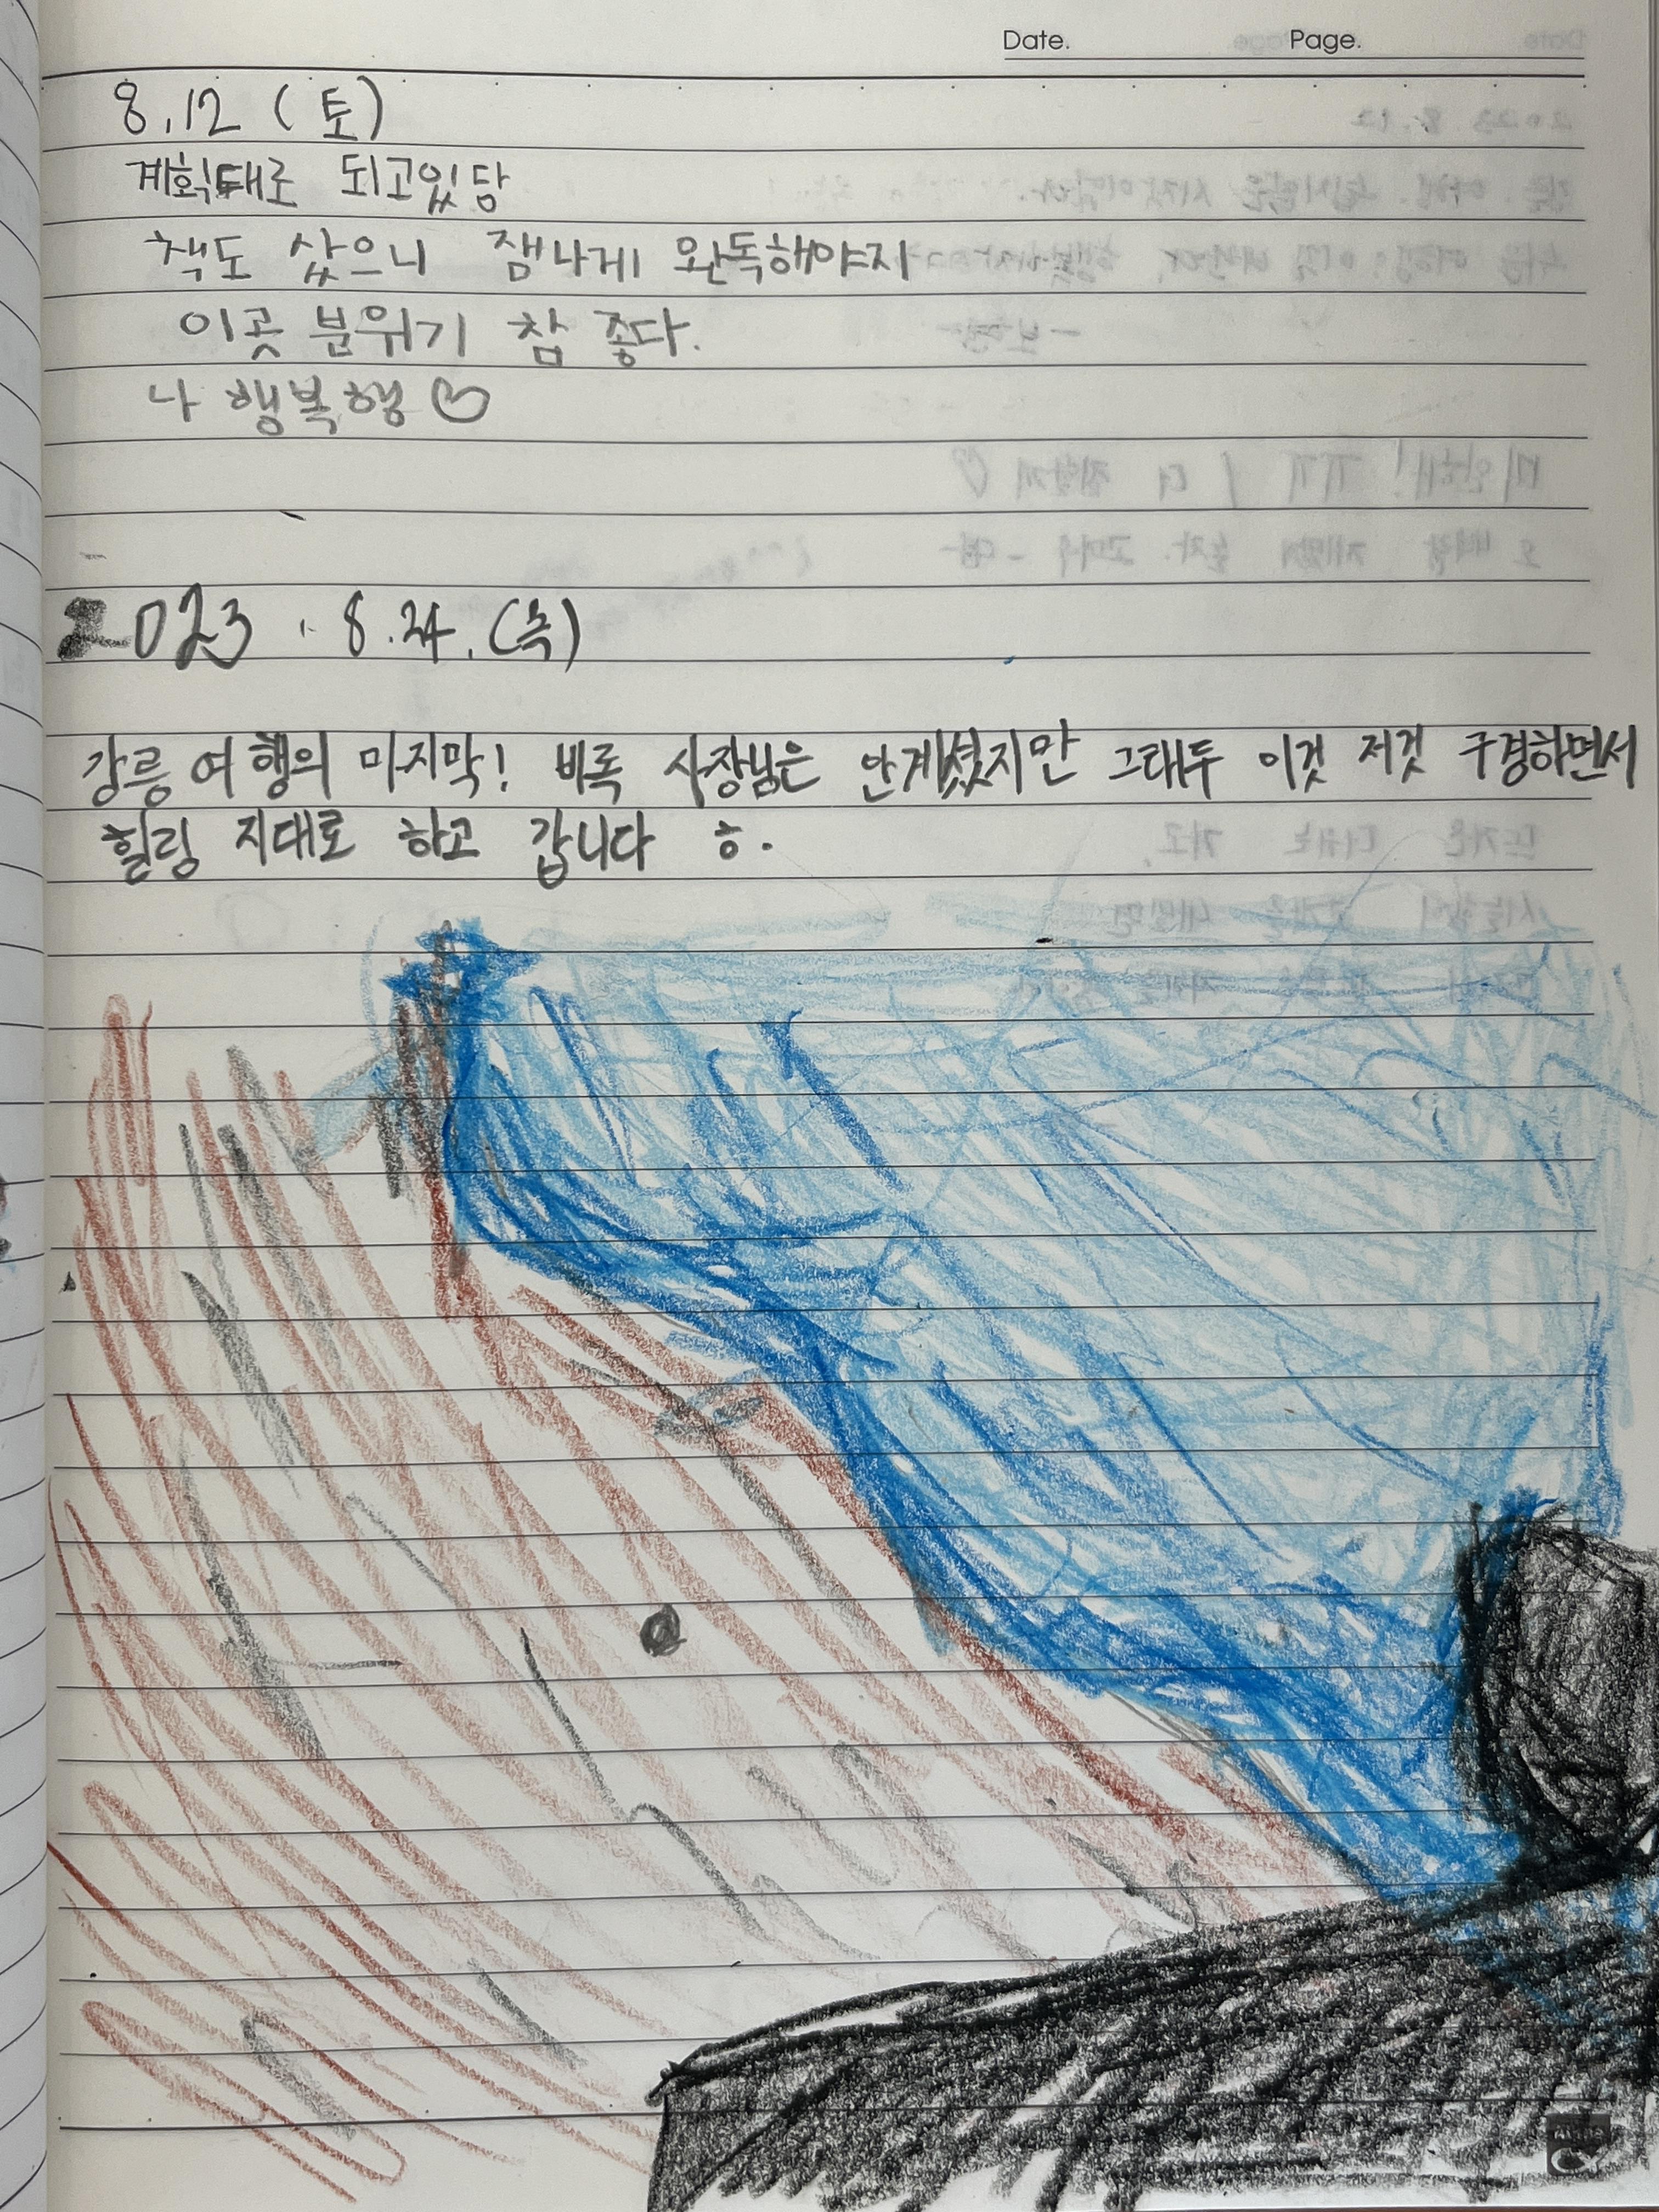 Date. Page.
8.12 (토)
계획대로 되고있당
책도 샀으니 잼나게 완독해야지
이곳 분위기 참 좋다.
나 행복행♡
2023. 8.24. (목)
강릉 여행의 마지막! 비록 사장님은 안계셨지만 그래두 이것 저것 구경하면서
힐링 지대로 하고 갑니다 ㅎ.